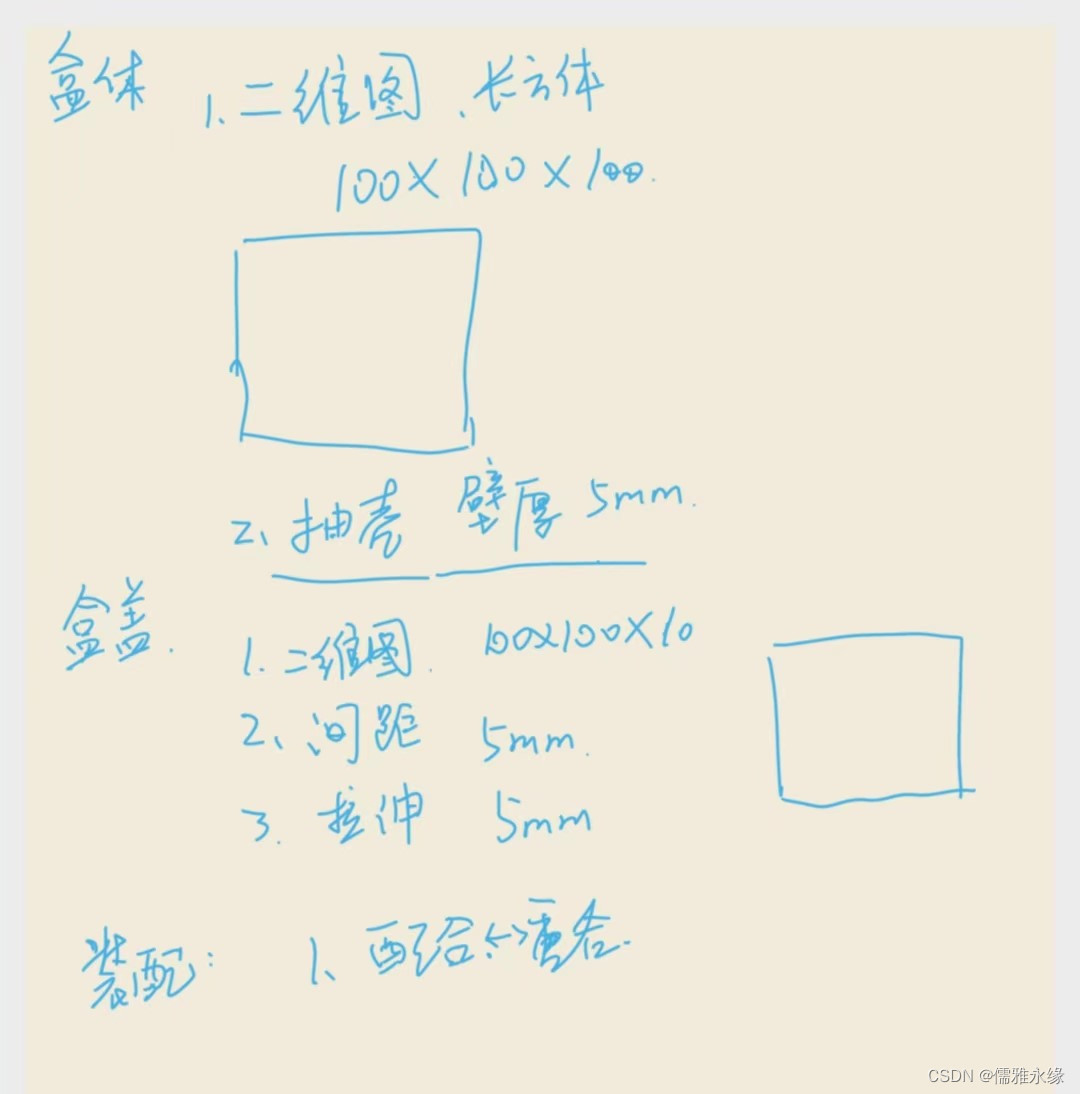 盒体 1. 二维图、长方体
100X100X100.
2、抽壳 壁厚 5mm.
盒盖. 1. 二维图. 100X100X10
2、间距 5mm.
3. 拉伸 5mm
装配: 1、配合<->重合.
CSDN @儒雅永缘